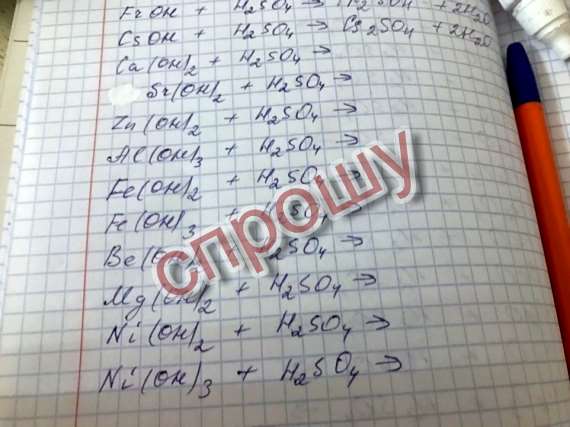 FrOH + H₂SO₄ → Fr₂SO₄ + 2H₂O
CsOH + H₂SO₄ → Cs₂SO₄ + 2H₂O
Ca(OH)₂ + H₂SO₄ →
Sr(OH)₂ + H₂SO₄ →
Zn(OH)₂ + H₂SO₄ →
Al(OH)₃ + H₂SO₄ →
Fe(OH)₂ + H₂SO₄ →
Fe(OH)₃ + H₂SO₄ →
Be(OH)₂ + H₂SO₄ →
Mg(OH)₂ + H₂SO₄ →
Ni(OH)₂ + H₂SO₄ →
Ni(OH)₃ + H₂SO₄ →
спрошу